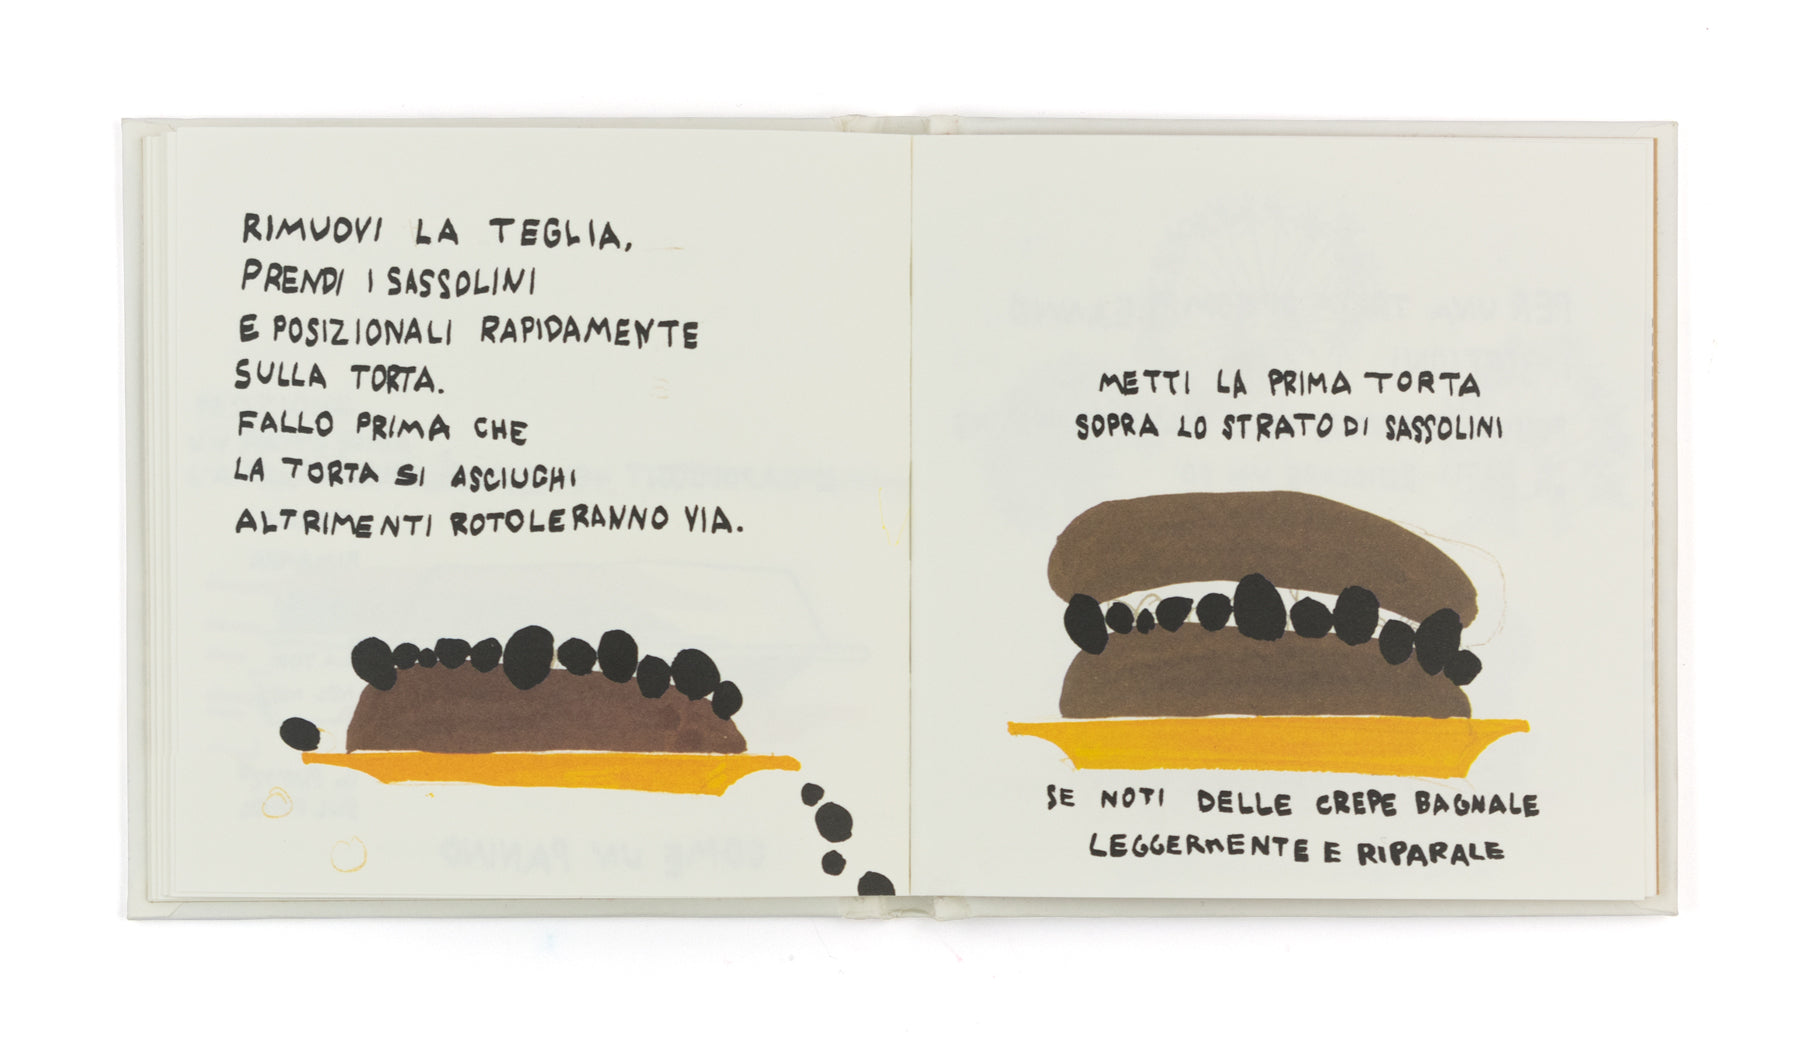 RIMUOVI LA TEGLIA,
PRENDI I SASSOLINI
E POSIZIONALI RAPIDAMENTE
SULLA TORTA.
FALLO PRIMA CHE
LA TORTA SI ASCIUGHI
ALTRIMENTI ROTOLERANNO VIA.
METTI LA PRIMA TORTA
SOPRA LO STRATO DI SASSOLINI
SE NOTI DELLE CREPE BAGNALE
LEGGERMENTE E RIPARALE